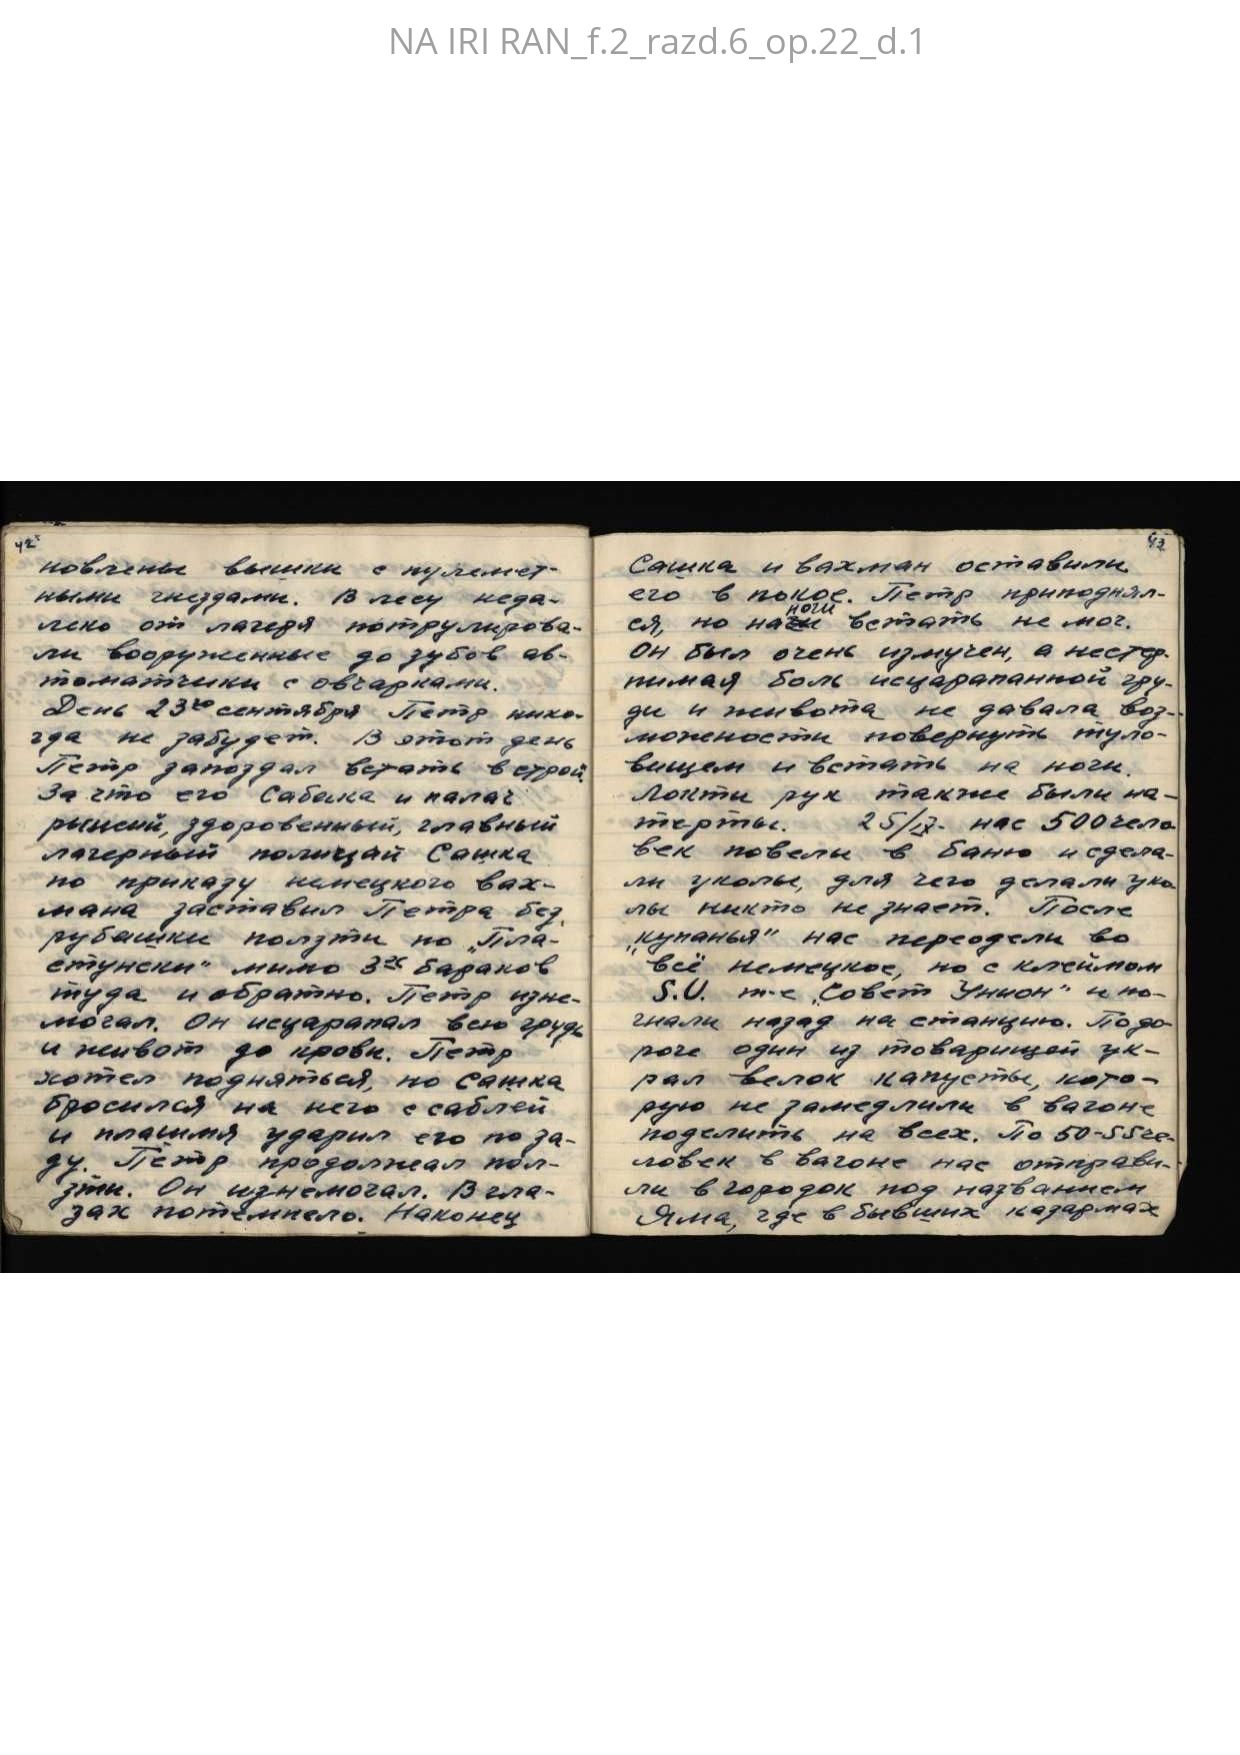 NA IRI RAN_f.2_razd.6_op.22_d.1
42
новлены вышки с пулемет-
ными гнездами. В лесу неда-
леко от лагеря потрулирова-
ли вооруженные до зубов ав-
томатчики с овчарками.
День 23го сентября Петр нико-
гда не забудет. В этот день
Петр запоздал встать в строй.
За что его Сабака и палач
рыжий, здоровенный, главный
лагерный полицай Сашка
по приказу немецкого вах-
мана заставил Петра без
рубашки ползти по „Пла-
стунски“ мимо 3ех бараков
туда и обратно. Петр изне-
могал. Он исцарапал всю грудь
и живот до крови. Петр
хотел подняться, но Сашка
бросился на него с саблей
и плашмя ударил его по за-
ду. Петр продолжал пол-
зти. Он изнемогал. В гла-
зах потемнело. Наконец
43
Сашка и вахман оставили
его в покое. Петр приподнял-
ноги
ся, но на встать не мог.
Он был очень измучен, а нестер-
пимая боль исцарапанной гру-
ди и живота не давала воз-
можности повернуть туло-
вищем и встать на ноги.
Локти рук также были на-
терты. 25/IX. нас 500 чело
век повели в баню и сдела-
ли уколы, для чего делали уко
лы никто не знает. После
„купанья“ нас переодели во
всё немецкое, но с клеймом
S.U. т-е „Совет Унион“ и по-
гнали назад на станцию. По до-
роге один из товарищей ук-
рал велок капусты, кото-
рую не замедлили в вагоне
поделить на всех. По 50-55 че-
ловек в вагоне нас отправи-
ли в городок под названием
Яма, где в бывших казармах